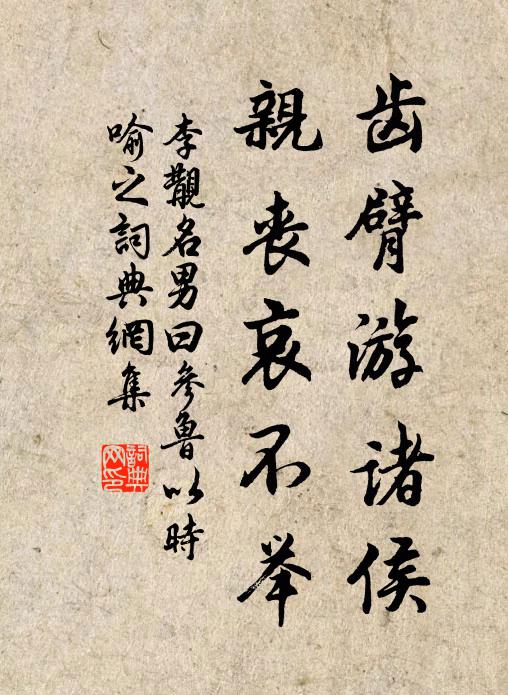 齿臂游诸侯
親丧哀不举
李覯名男曰參魯以時
喻之詞典網集
詞典网印